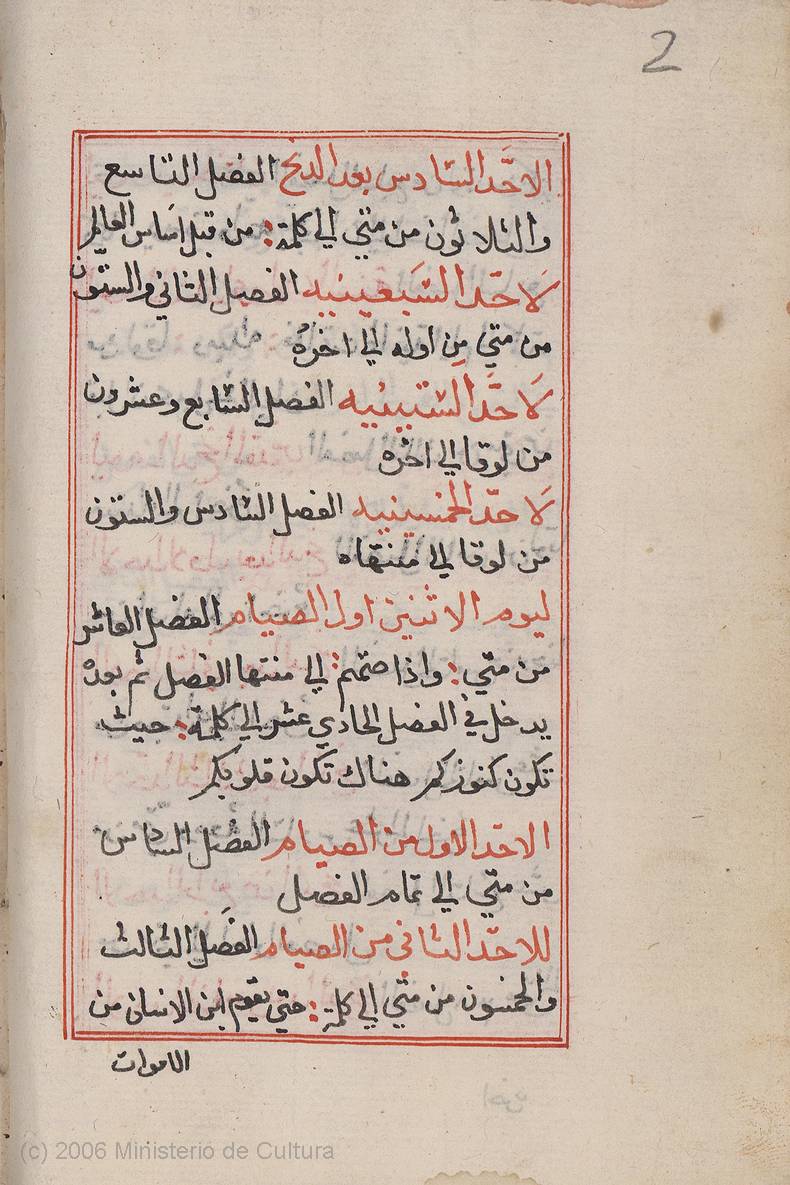 2
الاحَّد السّادس بعد الدنح الفصل التاسع
والتلاثون من متي الي كلمة : من قبل اساس العالم
لاحّد السَبعينيه الفصل الثاني والستّون
من متي مِن اوله الي اخرهُ
لاحَّد الستينيه الفصل السّابع وعشرون
من لوقا الي اخره
لاحّد الخمسينيه الفصل السّادس والستون
من لوقا الي منتهاه
ليوم الاثنين اول الصيام الفصل العاشر
من متي : واذا صمتم : الي منتها الفصل ثم بعدهُ
يدخل في الفصل الحادي عشر الي كلمة : حيث
تكون كنوزكم هناك تكون قلوبكم
الاحّد الاول من الصيام الفصل السادس
من متي الي تمام الفصل
للاحّد الثاني من الصيام الفصَل الثالث
والخمسون من متّي الي كلمة : حتي يقوم ابن الانسان من
الاموات
(c) 2006 Ministerio de Cultura